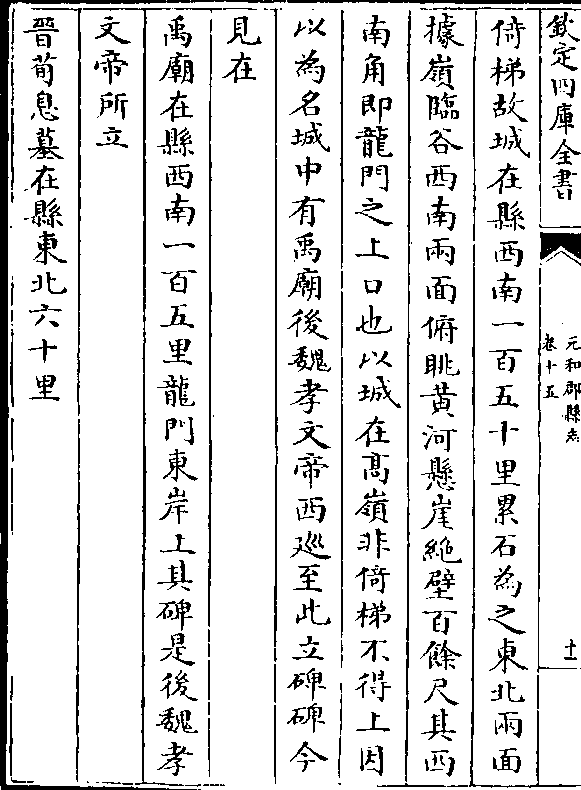 欽定四庫全書
元和郡縣志
卷十五
十一
倚梯故城在縣西南一百五十里累石為之東北兩面
據嶺臨谷西南兩面俯眺黄河懸崖絶壁百餘尺其西
南角即龍門之上口也以城在髙嶺非倚梯不得上因
以為名城中有禹廟後魏孝文帝西廵至此立碑碑今
見在
禹廟在縣西南一百五里龍門東岸上其碑是後魏孝
文帝所立
晉荀息墓在縣東北六十里